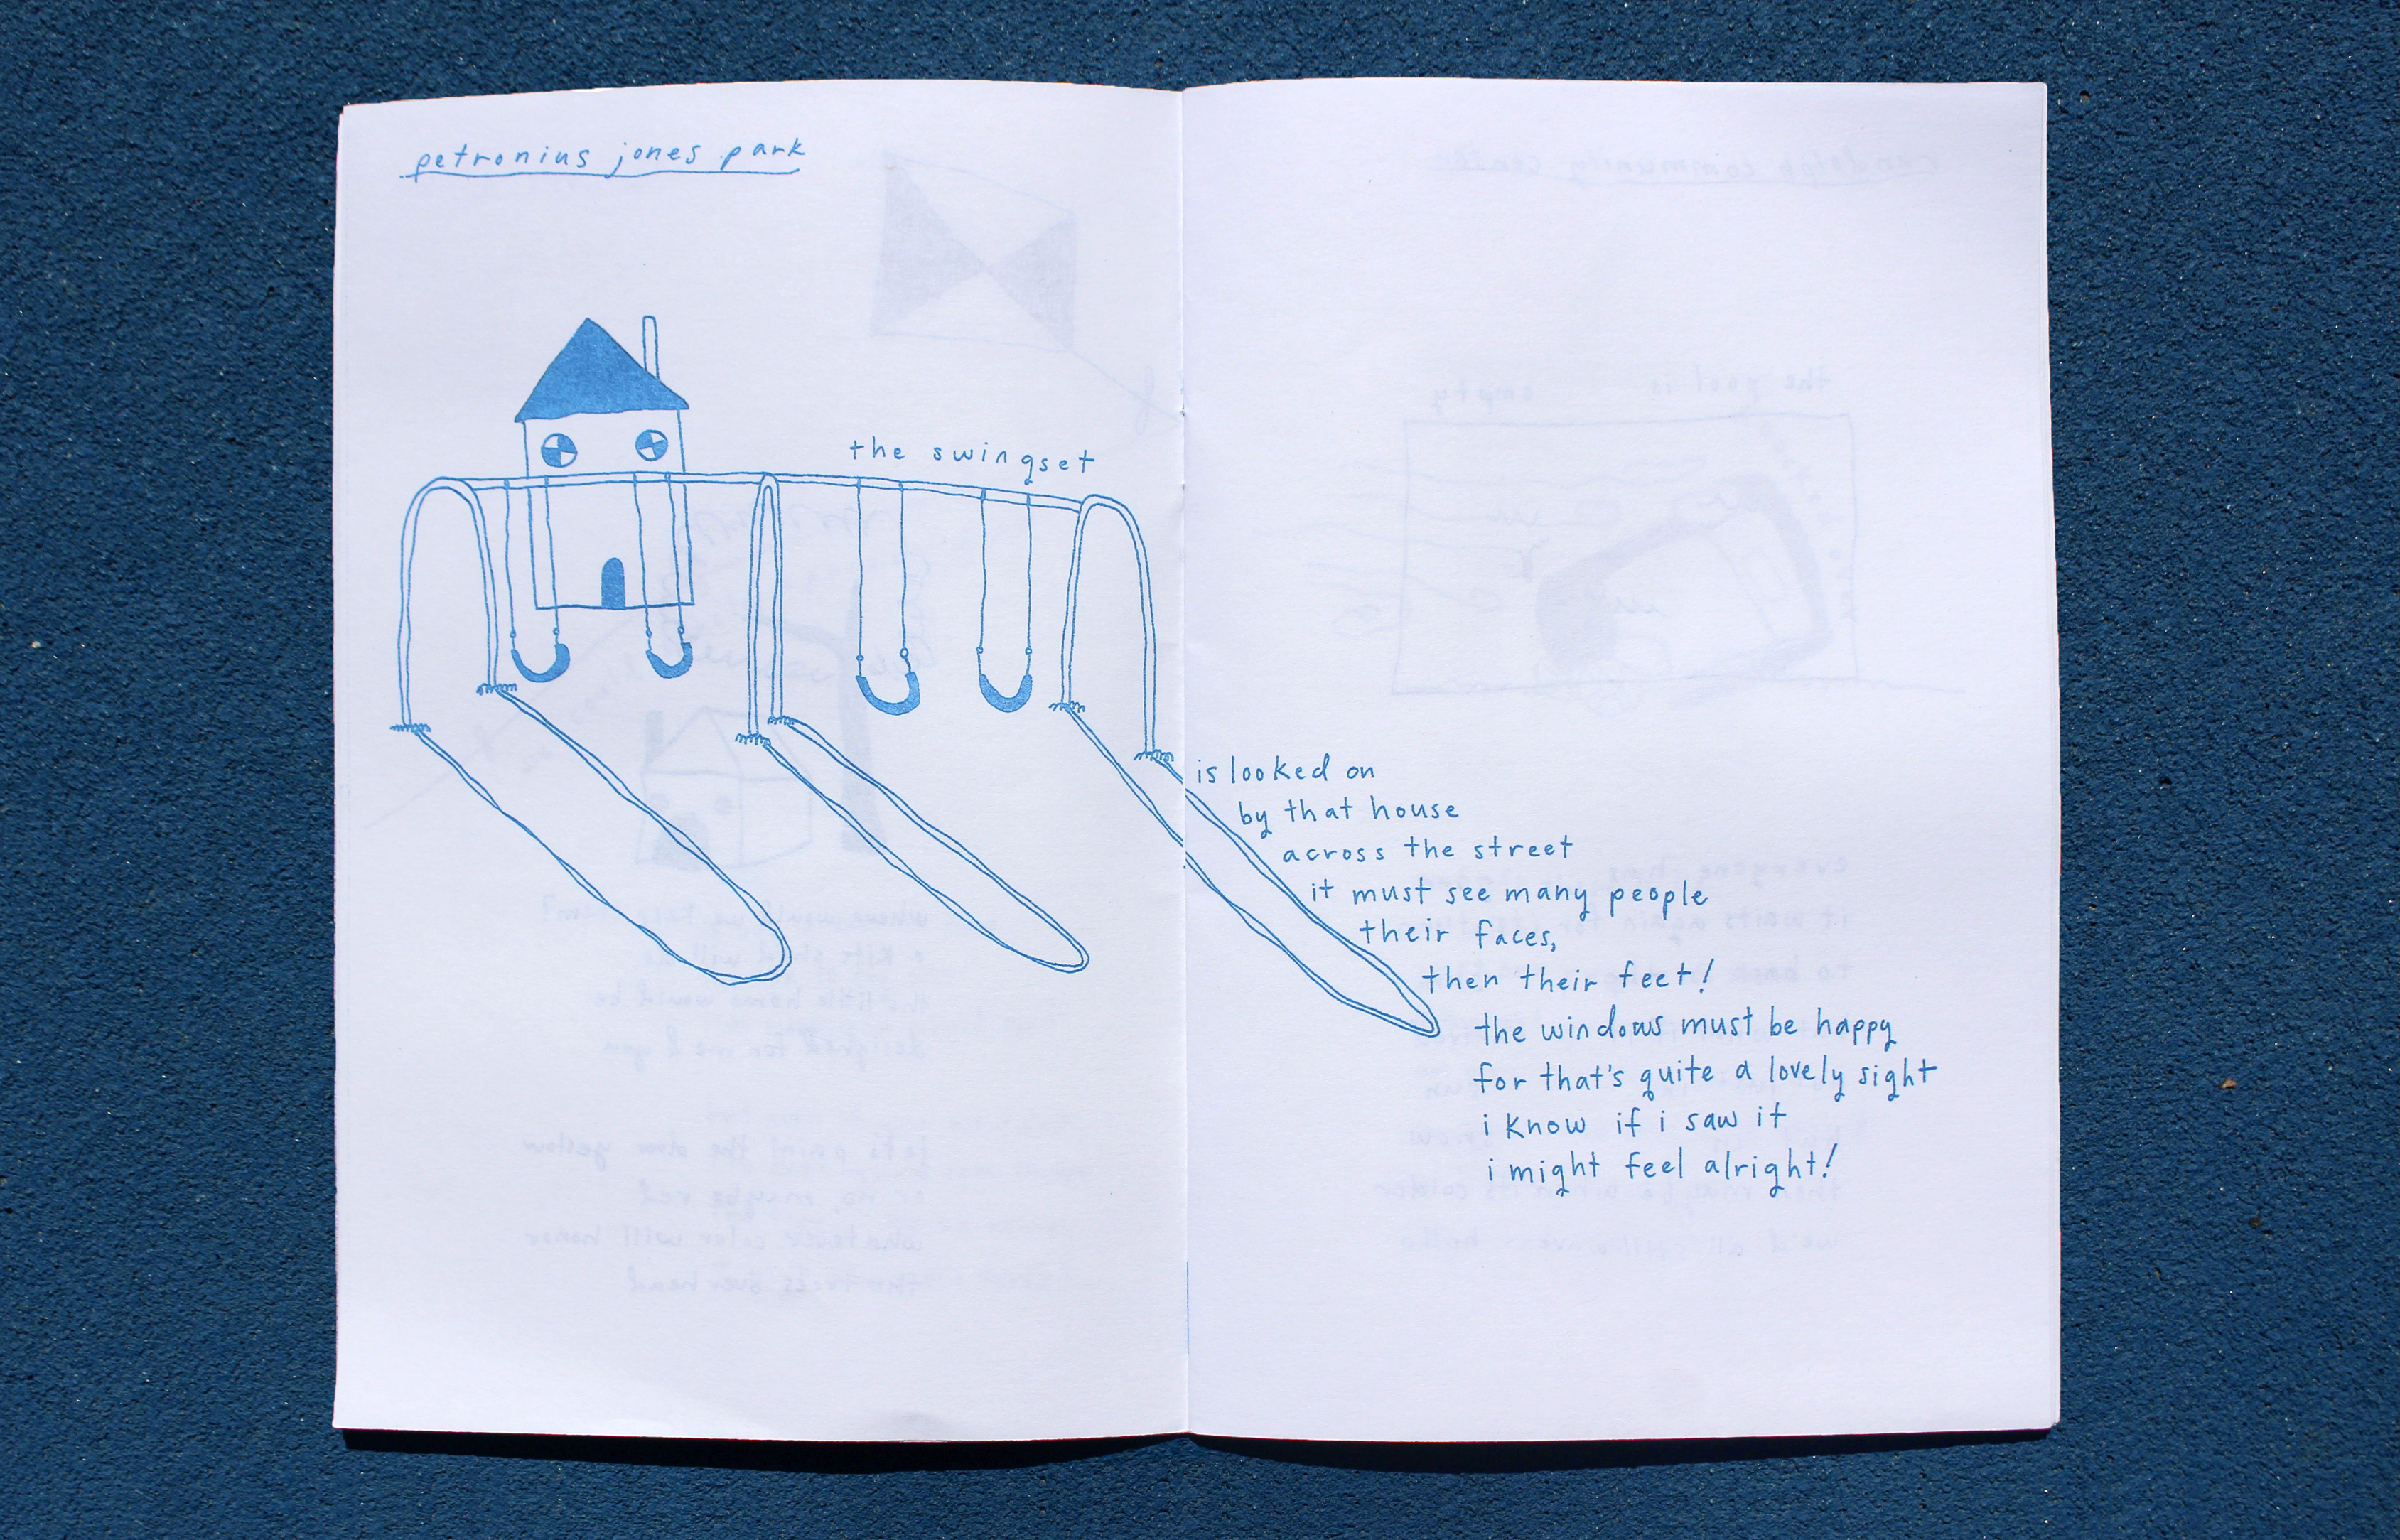 petronius jones park
the swingset
is looked on
by that house
across the street
it must see many people
their faces,
then their feet!
the windows must be happy
for that's quite a lovely sight
i know if i saw it
i might feel alright!